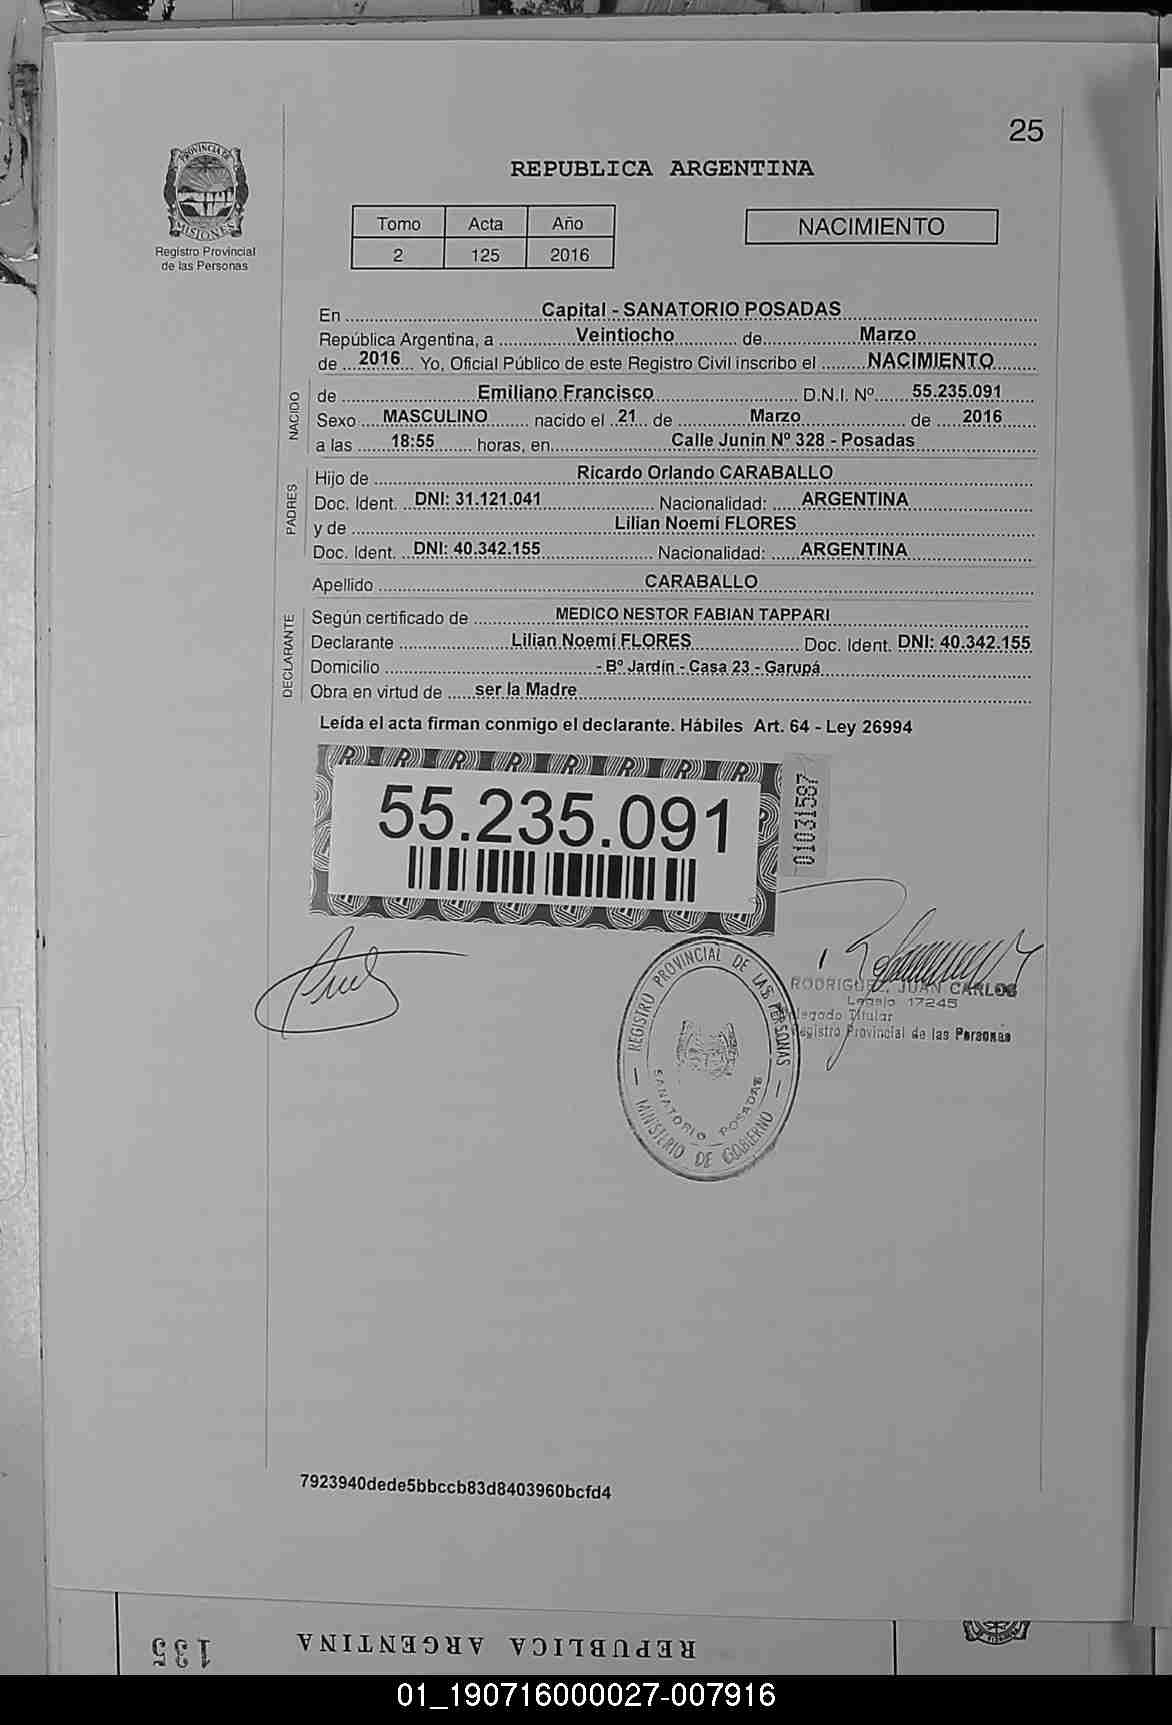 25
PROVINCIA DE
MISIONES
Registro Provincial
de las Personas
REPUBLICA ARGENTINA
Tomo Acta Año
2 125 2016
NACIMIENTO
En Capital - SANATORIO POSADAS
República Argentina, a Veintiocho de Marzo
de 2016 Yo, Oficial Público de este Registro Civil inscribo el NACIMIENTO
NACIDO
de Emiliano Francisco D.N.I. Nº 55.235.091
Sexo MASCULINO nacido el 21 de Marzo de 2016
a las 18:55 horas, en Calle Junin Nº 328 - Posadas
PADRES
Hijo de Ricardo Orlando CARABALLO
Doc. Ident. DNI: 31.121.041 Nacionalidad: ARGENTINA
y de Lilian Noemí FLORES
Doc. Ident. DNI: 40.342.155 Nacionalidad: ARGENTINA
Apellido CARABALLO
DECLARANTE
Según certificado de MEDICO NESTOR FABIAN TAPPARI
Declarante Lilian Noemí FLORES Doc. Ident. DNI: 40.342.155
Domicilio - Bº Jardín - Casa 23 - Garupá
Obra en virtud de ser la Madre
Leída el acta firman conmigo el declarante. Hábiles Art. 64 - Ley 26994
55.235.091
01031587
REGISTRO PROVINCIAL DE LAS PERSONAS
SANATORIO POSADAS
MINISTERIO DE GOBIERNO
RODRIGUEZ, JUAN CARLOS
Legajo 17245
Delegado Titular
Registro Provincial de las Personas
7923940dede5bbccb83d8403960bcfd4
REPUBLICA ARGENTINA
135
01_190716000027-007916